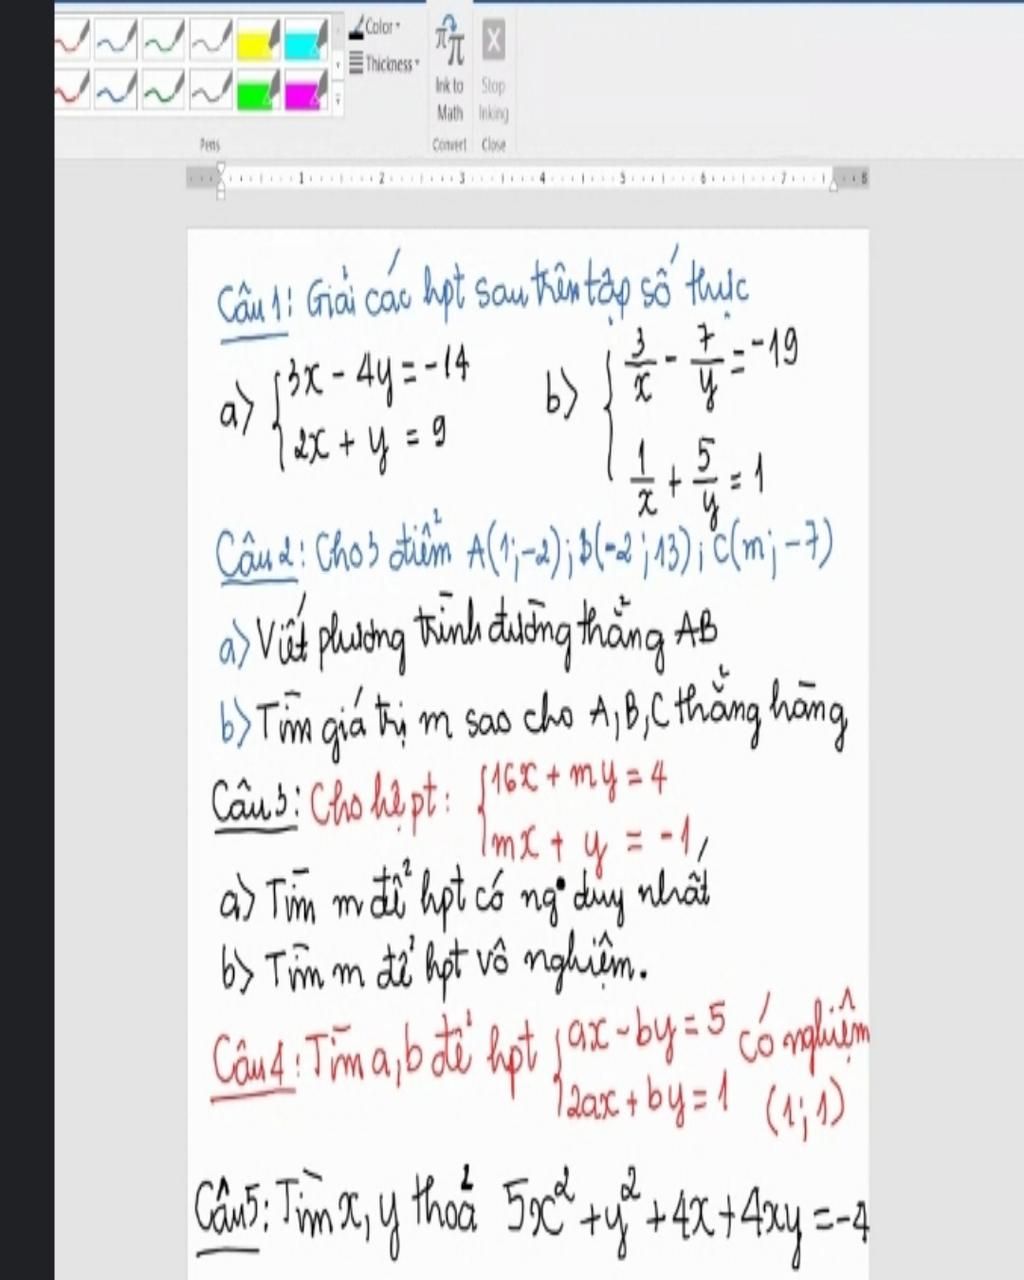 Color
Thickness
Ink to Math
Stop Inking
Pens
Convert
Close
1 2 3 4 5 6 7 8
Câu 1: Giải các hpt sau trên tập số thực
a) { 3x - 4y = -14
2x + y = 9
b) { 3/x - 7/y = -19
1/x + 5/y = 1
Câu 2: Cho 3 điểm A(1;-2); B(-2;13); C(m;-7)
a) Viết phương trình đường thẳng AB
b) Tìm giá trị m sao cho A,B,C thẳng hàng
Câu 3: Cho hệ pt: { 16x + my = 4
mx + y = -1
a) Tìm m để hpt có ng° duy nhất
b) Tìm m để hpt vô nghiệm.
Câu 4: Tìm a,b để hpt { ax - by = 5 có nghiệm
2ax + by = 1 (1;1)
Câu 5: Tìm x,y thoả 5x² + y² + 4x + 4xy = -4